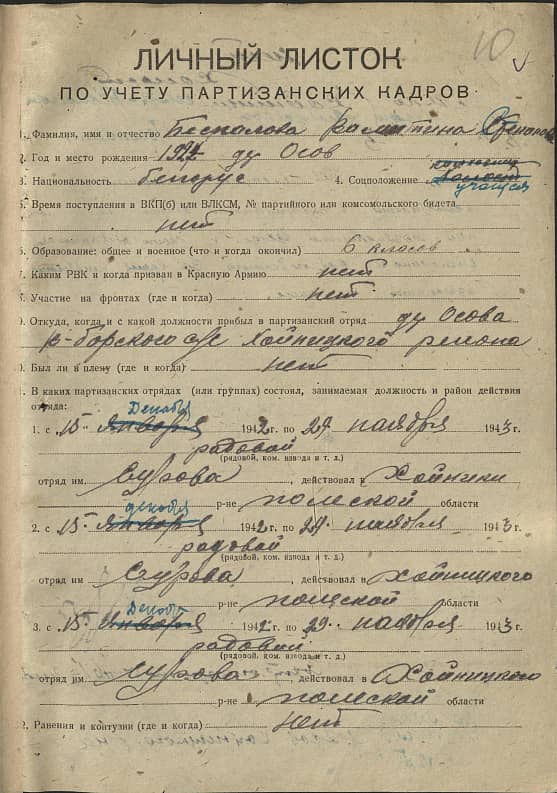 10
ЛИЧНЫЙ ЛИСТОК
ПО УЧЕТУ ПАРТИЗАНСКИХ КАДРОВ
1. Фамилия, имя и отчество Беспалова Валитина
2. Год и место рождения ду Осов
3. Национальность белорус 4. Соцположение учащеся
5. Время поступления в ВКП(б) или ВЛКСМ, № партийного или комсомольского билета
нет
6. Образование: общее и военное (что и когда окончил) 6 класов
7. Каким РВК и когда призван в Красную Армию нет
8. Участие на фронтах (где и когда) нет
9. Откуда, когда и с какой должности прибыл в партизанский отряд ду Осова
р-борского с/с Хойницкого региона
10. Был ли в плену (где и когда) нет
11. В каких партизанских отрядах (или группах) состоял, занимаемая должность и район действия
отряда:
Декабря
1. с 15 января 1942 г. по 29 наября 1943 г.
радовой
(рядовой, ком. взвода и т. д.)
отряд им. Сурова, действовал в Хойники
р-не полеской области
декабря
2. с 15 января 1942 г. по 29 наября 1943 г.
радовой
(рядовой, ком. взвода и т. д.)
отряд им Сурова, действовал в Хойницкого
р-не полеской области
Декабр
3. с 15 января 1942 г. по 29 наабря 1943 г.
радовой
(рядовой, ком. взвода и т. д.)
отряд им. Сурова, действовал в Хойницкого
р-не полеской области
12. Ранения и контузии (где и когда) нет